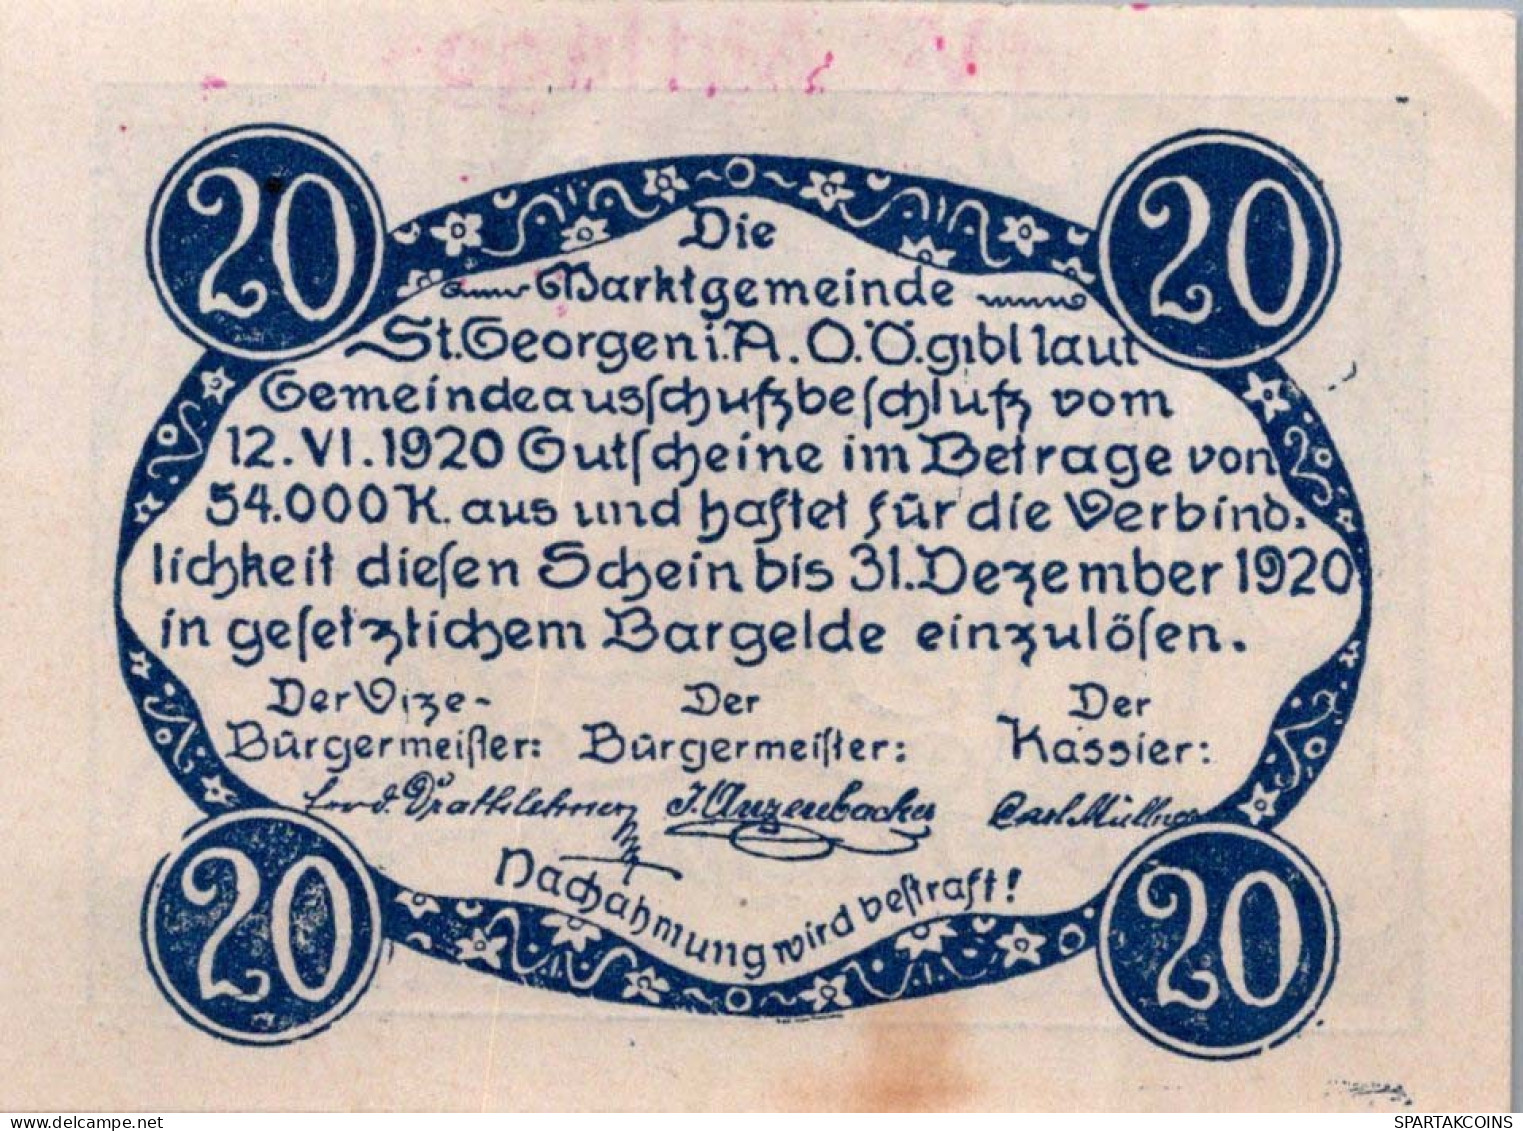 20
20
Die
Marktgemeinde
St. Georgen i. A. O.Ö. gibt laut
Gemeindeausſchuſzbeſchluſz vom
12. VI. 1920 Gutſcheine im Betrage von
54.000 K. aus und haftet für die Verbind=
lichkeit dieſen Schein bis 31. Dezember 1920
in geſetzlichem Bargelde einzulöſen.
Der Vize-
Bürgermeiſter:
Der
Bürgermeiſter:
Der
Kassier:
J. Anzenbacher
Carl Müllner
Nachahmung wird beſtraft!
20
20
www.delcampe.net
SPARTAKCOINS